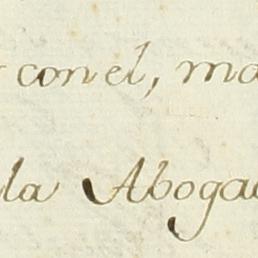 con el, ma
la Aboga